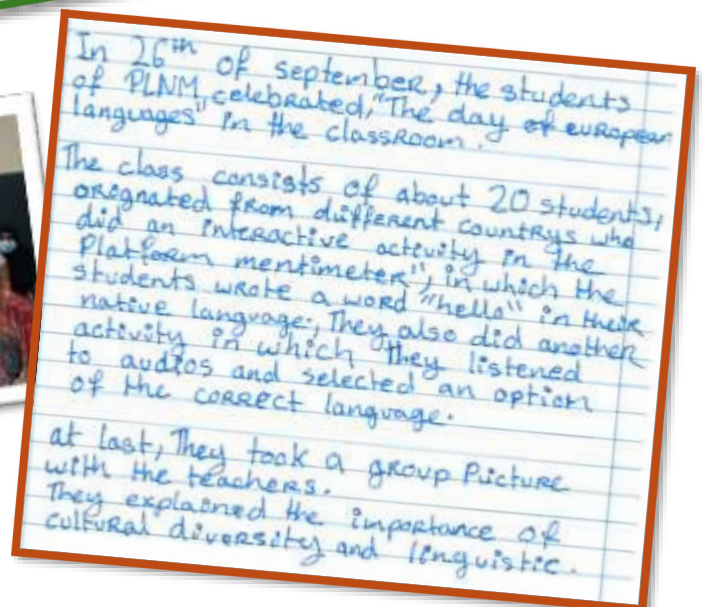 In 26th of september, the students
of PLNM celebrated, "The day of european
languages" in the classroom.
The class consists of about 20 students,
oregnated from different countrys who
did an interactive activity in the
Platform mentimeter", in which the
students wrote a word "hello" in their
native language, They also did another
activity in which they listened
to audios and selected an option
of the correct language.
at last, They took a group Picture
with the teachers.
They explained the importance of
cultural diversity and linguistic.